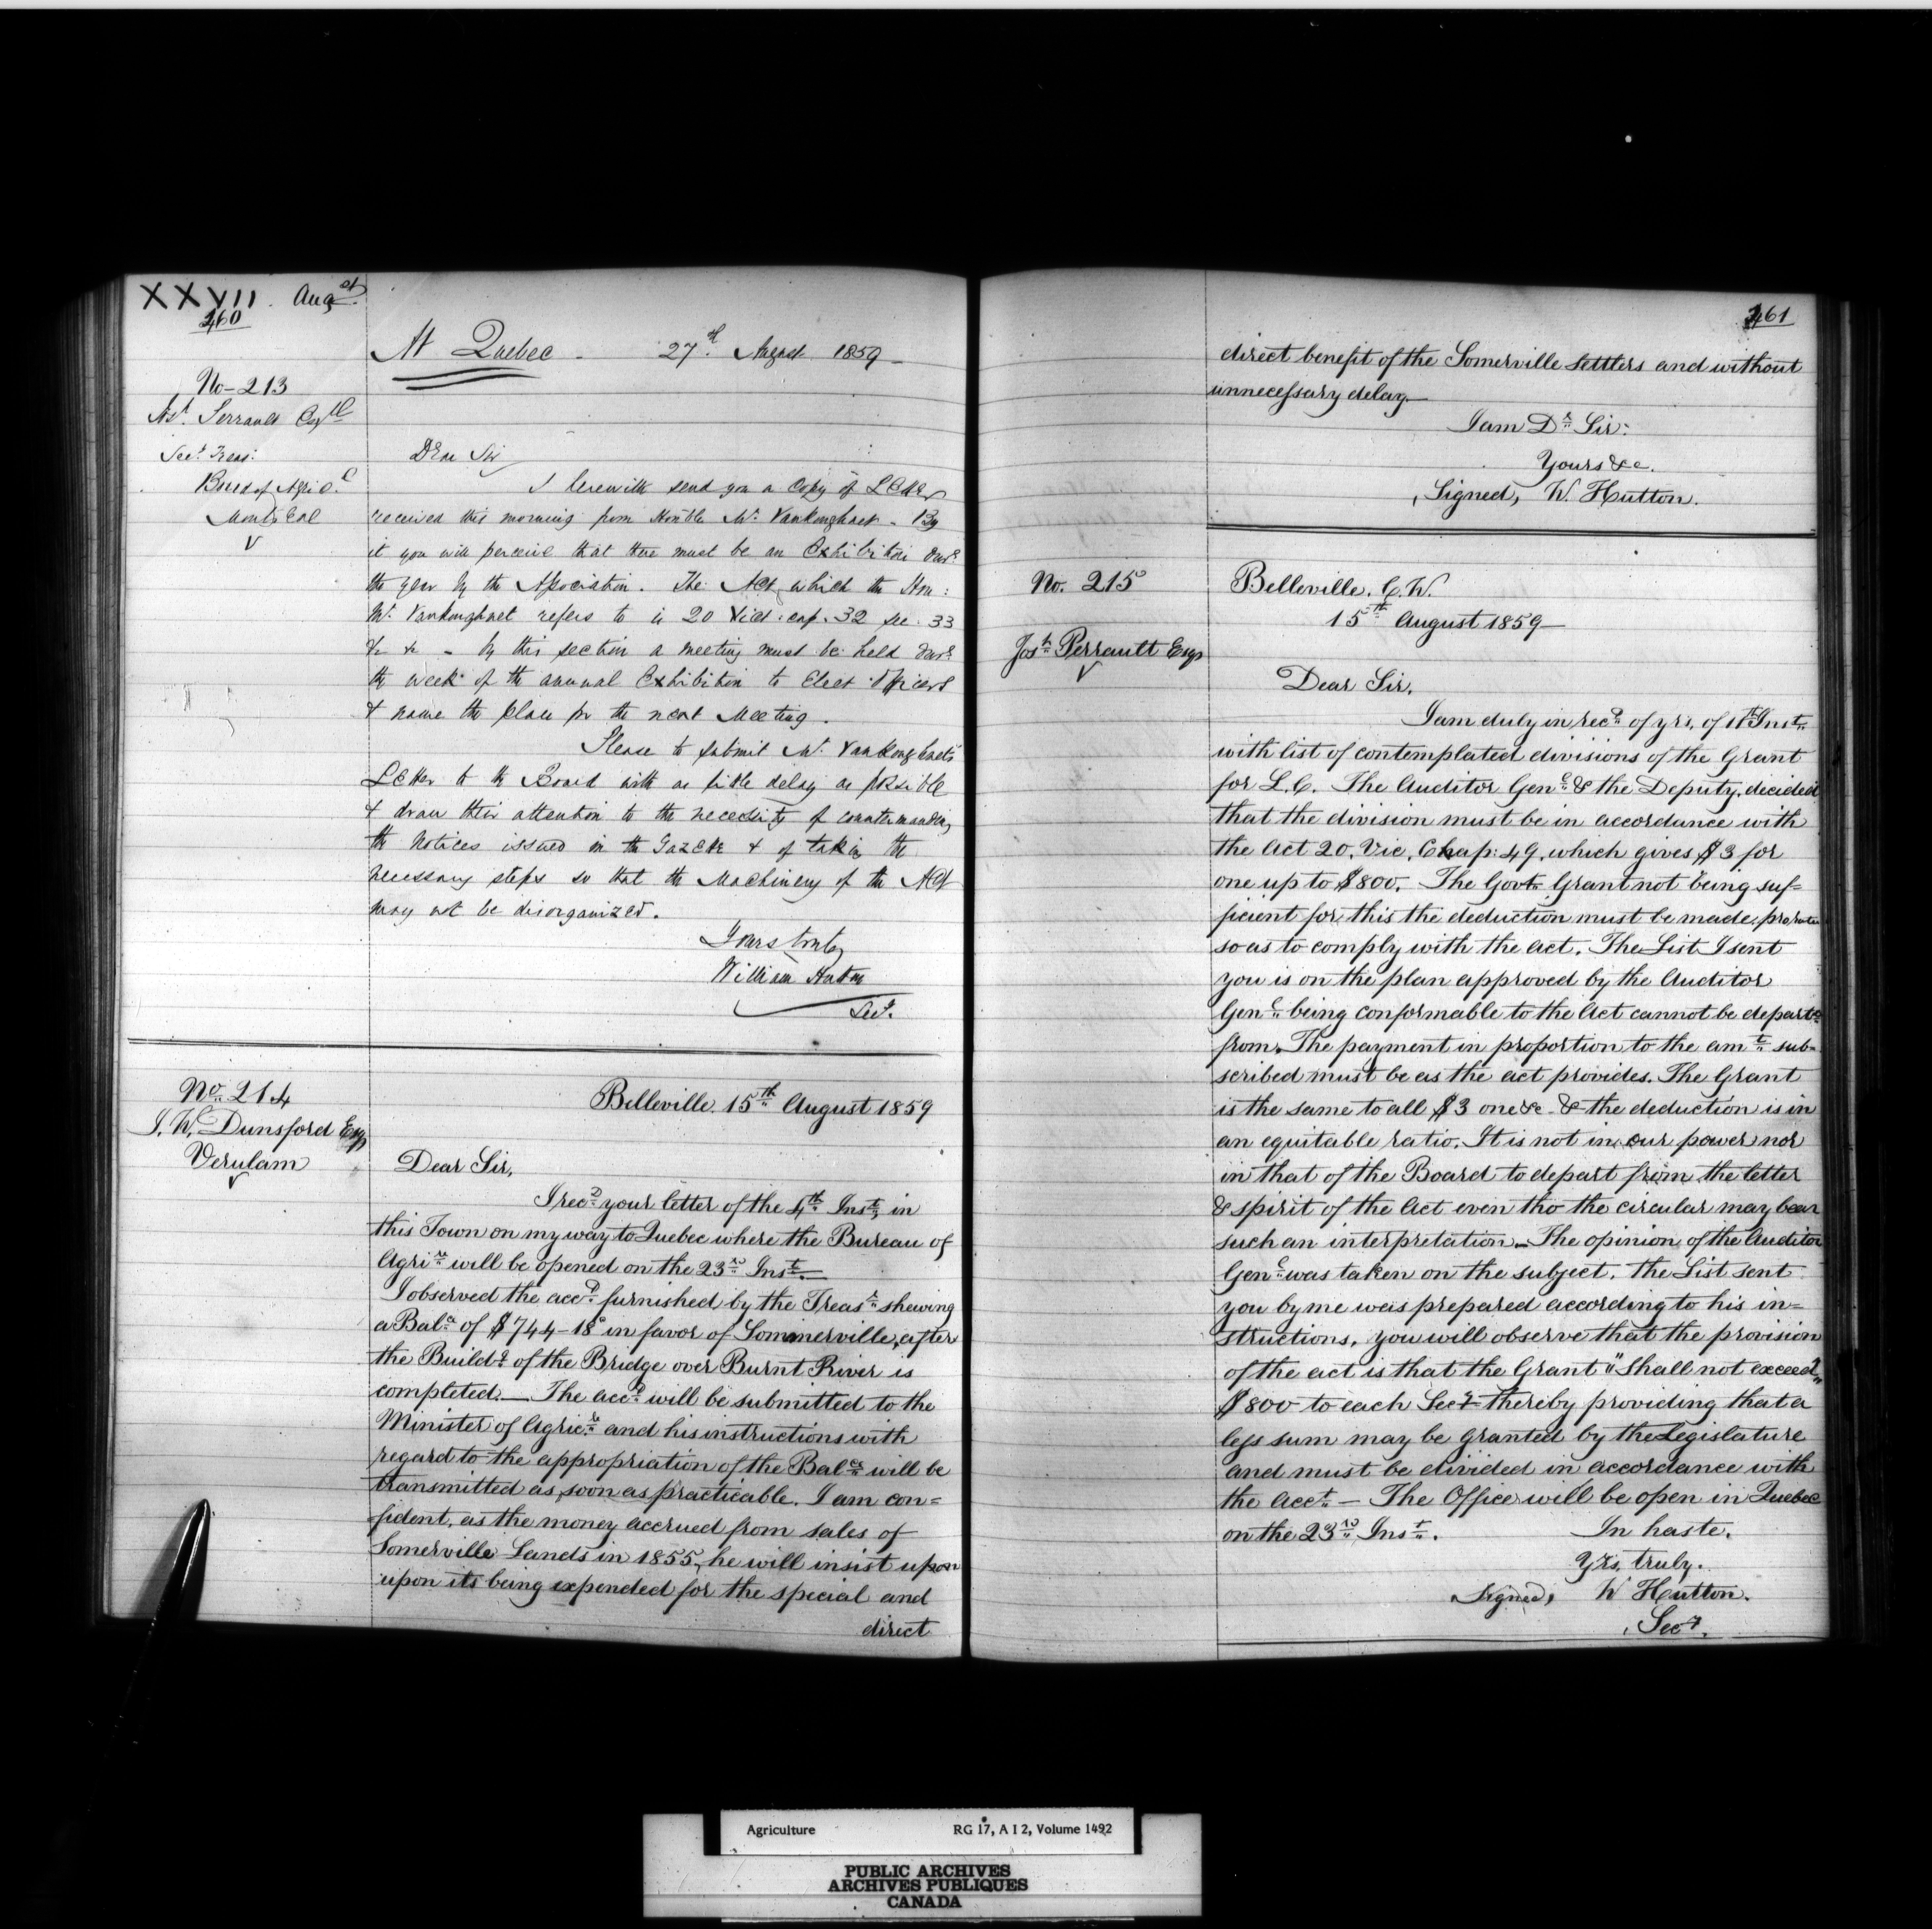 XXVII. Augst
460
At Quebec - 27th August 1859 -
No - 213
Jos. Perrault Esqre
Secy. Treas:
Board of Agric.l
Montreal
Dear Sir
I herewith send you a Copy of Letter
received this morning from Honble Mr. Vankoughnet - By
it you will perceive that there must be an Exhibition dur.g
the year by the Association. The Act which the Hon:
Mr. Vankoughnet refers to is 20 Vict. cap. 32 sec. 33
&c &c - by this section a meeting must be held dur.g
the week of the annual Exhibition to Elect Officers
& name the place for the next Meeting.
Please to submit Mr. Vankoughnet's
Letter to the Board with as little delay as possible
& draw their attention to the necessity of countermanding
the Notices issued in the Gazette & of taking the
necessary steps so that the Machinery of the Act
may not be disorganized.
Yours truly
William Hutton
Secy.
No. 214
J. W. Dunsford Esqr
Verulam
Belleville 15th August 1859
Dear Sir,
I recd your letter of the 4th Inst, in
this Town on my way to Quebec where the Bureau of
Agrire will be opened on the 23rd Inst.
I observed the acct. furnished by the Treasr shewing
a Bala of $744-18c in favor of Sommerville, after
the Buildg of the Bridge over Burnt River is
completed. — The acct will be submitted to the
Minister of Agricre and his instructions with
regard to the appropriation of the Balce will be
transmitted as soon as practicable. I am con=
fident, as the money accrued from sales of
Somerville Lands in 1855, he will insist upon
upon its being expended for the special and
direct
461
direct benefit of the Somerville settlers and without
unnecessary delay —
I am Dr Sir:
Yours &c.
Signed, W. Hutton.
No. 215
Josh Perrault Esqr
Belleville. C. W.
15th August 1859 —
Dear Sir,
I am duly in recd of yrs. of 11th Inst
with list of contemplated divisions of the Grant
for L. C. The Auditor Genl & the Deputy, decided
that the division must be in accordance with
the Act 20. Vic. Chap: 49, which gives $3 for
one up to $800. The Govt Grant not being suf=
ficient for this the deduction must be made, pro rata
so as to comply with the act. The List I sent
you is on the plan approved by the Auditor
Genl being conformable to the Act cannot be departd
from. The payment in proportion to the amt sub=
scribed must be as the act provides. The Grant
is the same to all $3 one &c - & the deduction is in
an equitable ratio. It is not in our power nor
in that of the Board to depart from the letter
& spirit of the Act even tho the circular may bear
such an interpretation — The opinion of the Auditor
Genl was taken on the subject. The List sent
you by me was prepared according to his in=
structions, you will observe that the provision
of the act is that the Grant "shall not exceed"
$800 to each Secy thereby providing that a
less sum may be granted by the Legislature
and must be divided in accordance with
the Acct — The Office will be open in Quebec
on the 23rd Inst. In haste.
Yrs, truly.
Signed, W Hutton.
Secy.
Agriculture RG 17, A I 2, Volume 1492
PUBLIC ARCHIVES
ARCHIVES PUBLIQUES
CANADA